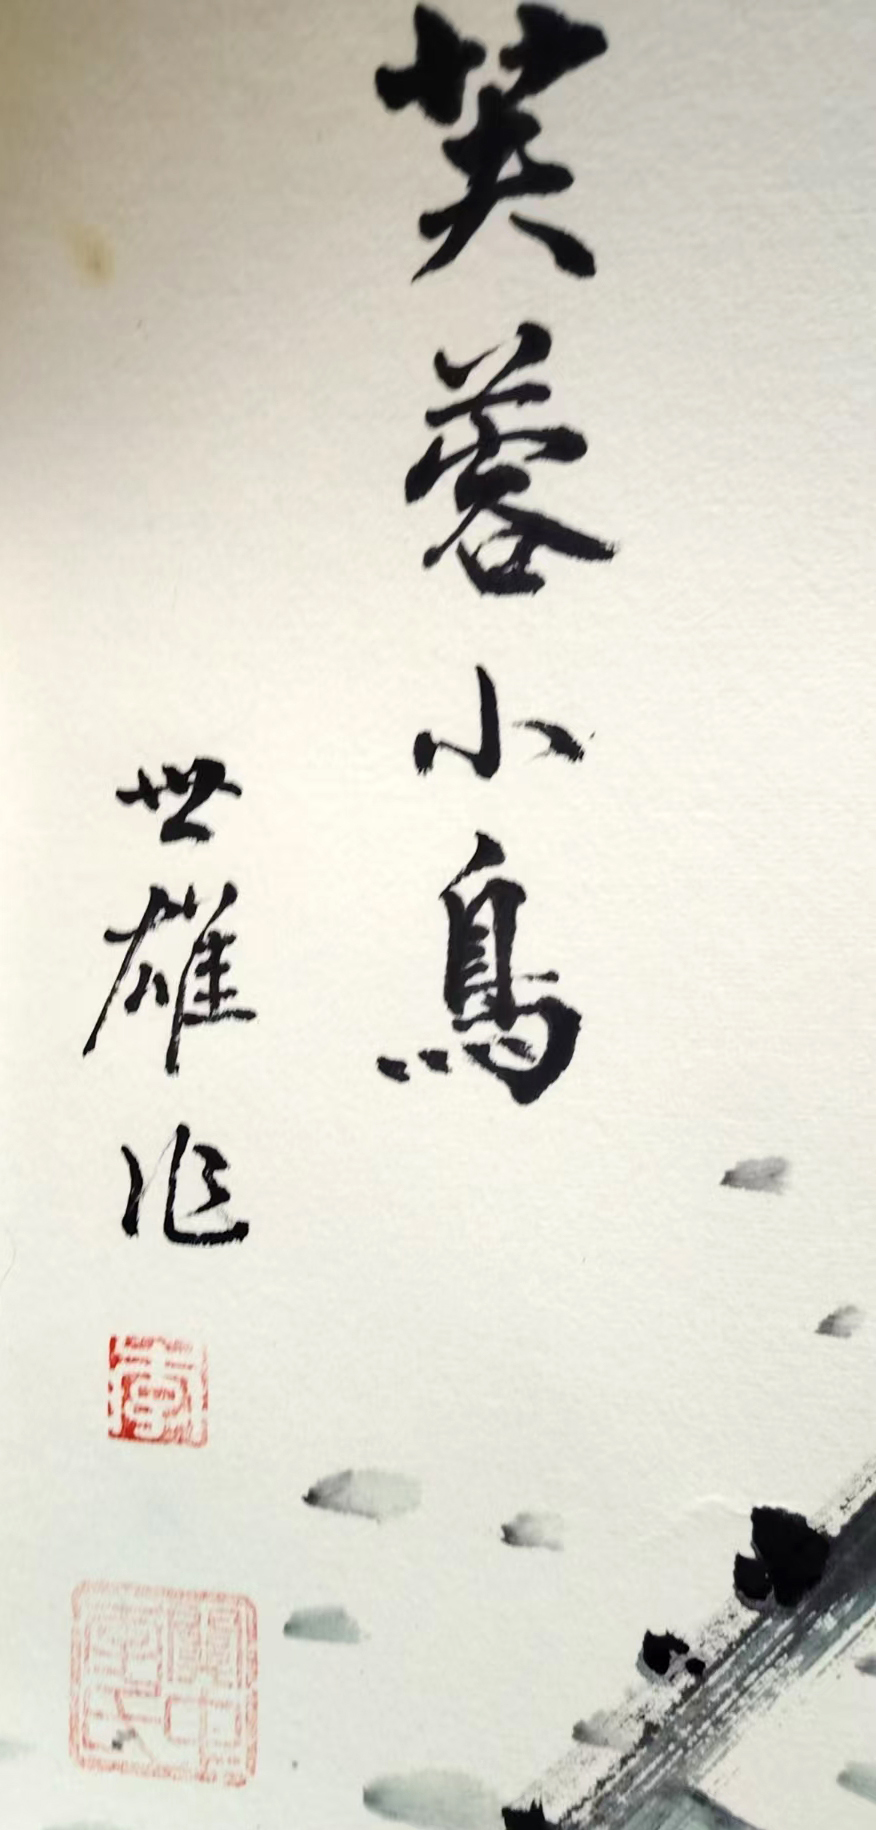 芙蓉小鳥
世雄作
李